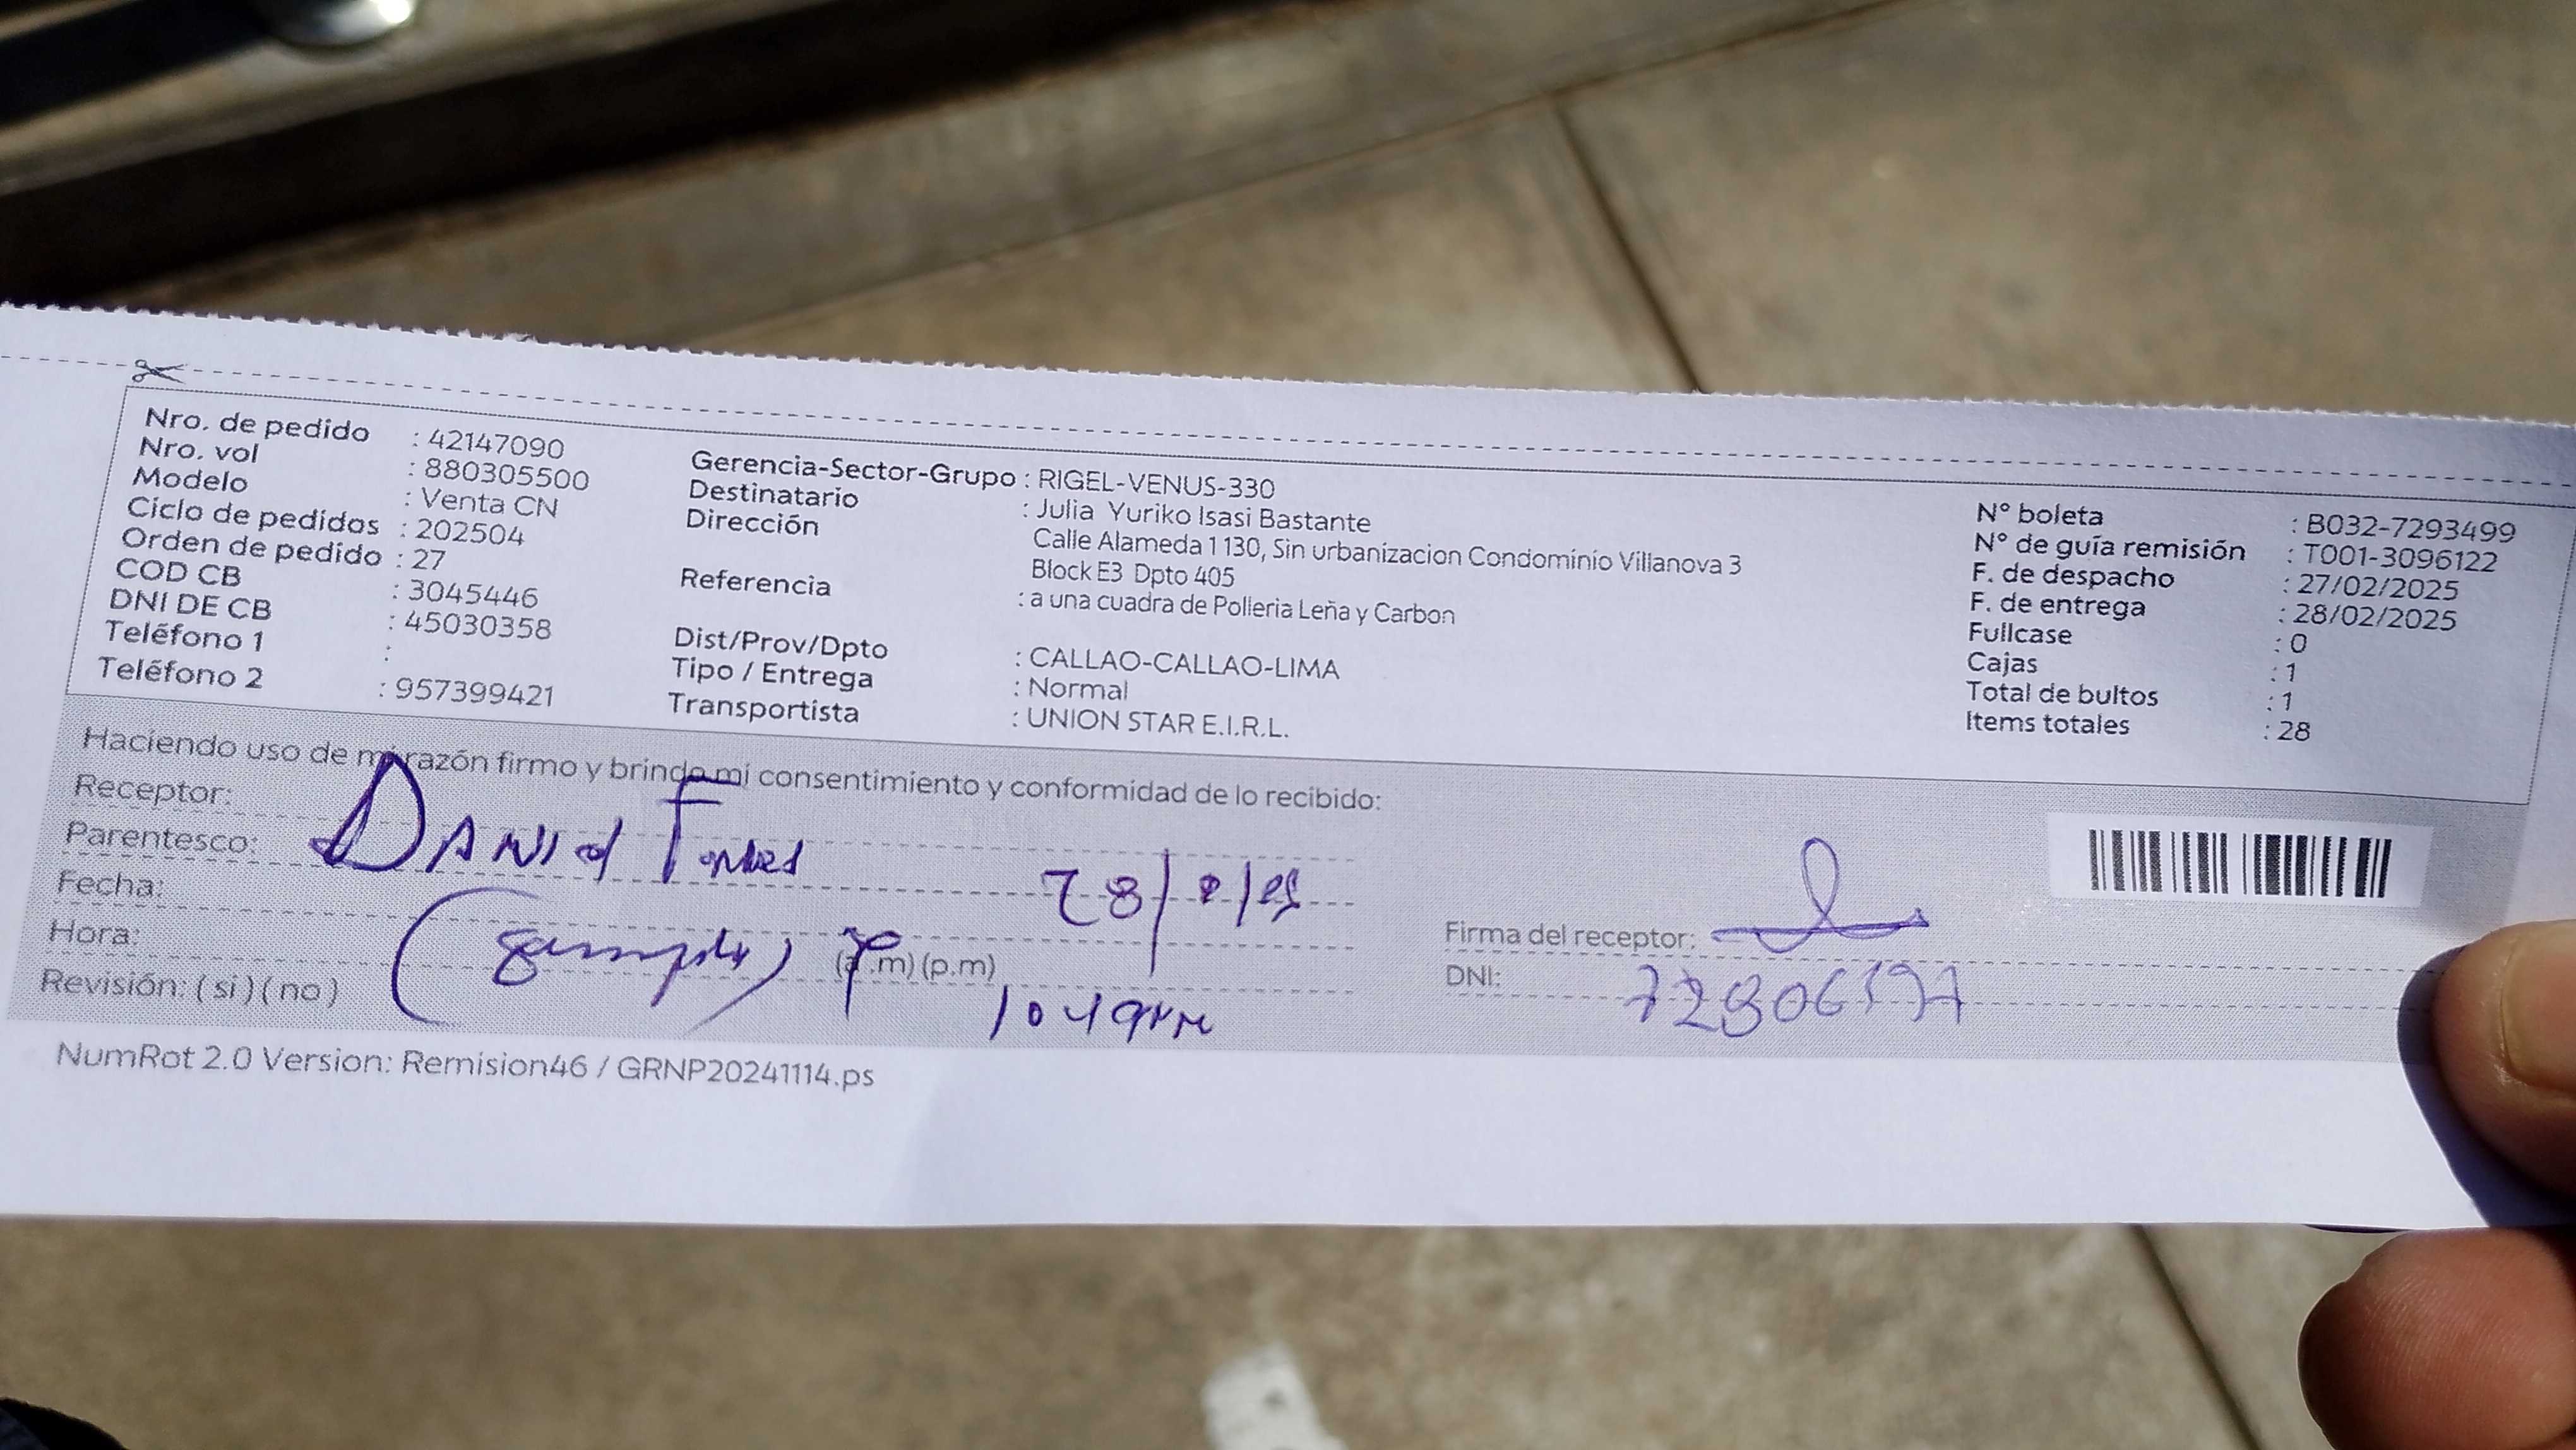 Nro. de pedido : 42147090
Nro. vol : 880305500
Modelo : Venta CN
Ciclo de pedidos : 202504
Orden de pedido : 27
COD CB : 3045446
DNI DE CB : 45030358
Teléfono 1 :
Teléfono 2 : 957399421
Gerencia-Sector-Grupo : RIGEL-VENUS-330
Destinatario : Julia Yuriko Isasi Bastante
Dirección Calle Alameda 1 130, Sin urbanizacion Condominio Villanova 3
Block E3 Dpto 405
Referencia : a una cuadra de Polleria Leña y Carbon
Dist/Prov/Dpto : CALLAO-CALLAO-LIMA
Tipo / Entrega : Normal
Transportista : UNION STAR E.I.R.L.
N° boleta : B032-7293499
N° de guía remisión : T001-3096122
F. de despacho : 27/02/2025
F. de entrega : 28/02/2025
Fullcase : 0
Cajas : 1
Total de bultos : 1
Items totales : 28
Haciendo uso de mi razón firmo y brindo mi consentimiento y conformidad de lo recibido:
Receptor:
Parentesco: DANIel
Fecha: 28/2/25
Hora: (a.m) (p.m)
Revisión: ( si ) ( no )
Firma del receptor:
DNI:
NumRot 2.0 Version: Remision46 / GRNP20241114.ps